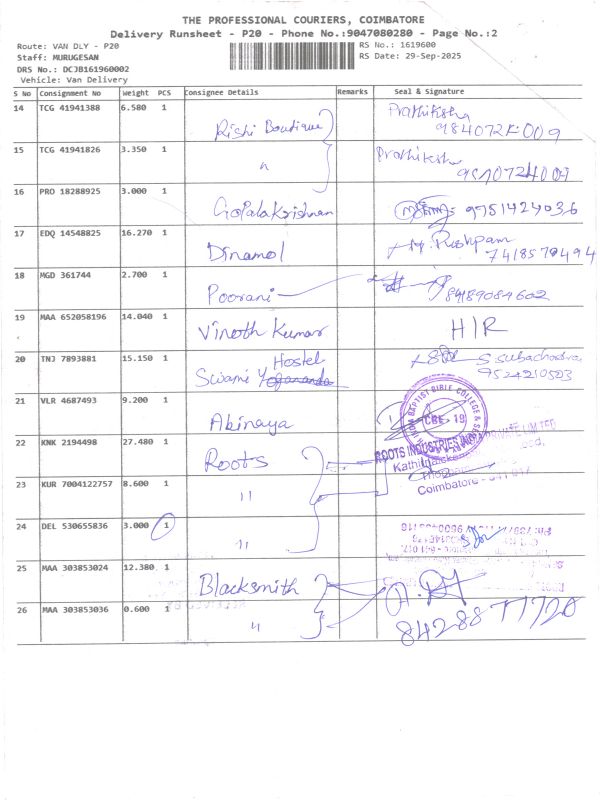 THE PROFESSIONAL COURIERS, COIMBATORE
Delivery Runsheet - P20 - Phone No.:9047080280 - Page No.:2
Route: VAN DLY - P20 RS No.: 1619600
Staff: MURUGESAN RS Date: 29-Sep-2025
DRS No.: DCJB161960002
Vehicle: Van Delivery
S No Consignment No Weight PCS Consignee Details Remarks Seal & Signature
14 TCG 41941388 6.580 1 Rishi Boutique Prathiksha
15 TCG 41941826 3.350 1 " Prathiksh
16 PRO 18288925 3.000 1 GopalaKrishnan 9751424036
17 EDQ 14548825 16.270 1 Dinamol Pushpam
7418570494
18 MGD 361744 2.700 1 Poorani
19 MAA 652058196 14.040 1 Vinoth Kumar H/R
20 TNJ 7893881 15.150 1 Swami Hostel
21 VLR 4687493 9.200 1 Abinaya
BAPTIST BIBLE COLLEGE &
CBE - 19
22 KNK 2194498 27.480 1 Roots ROOTS INDUSTRIES PRIVATE LIMITED
Coimbatore - 641 017
23 KUR 7004122757 8.600 1 "
24 DEL 530655836 3.000 1 "
25 MAA 303853024 12.380 1 Blacksmith
26 MAA 303853036 0.600 1 " 84288 77720